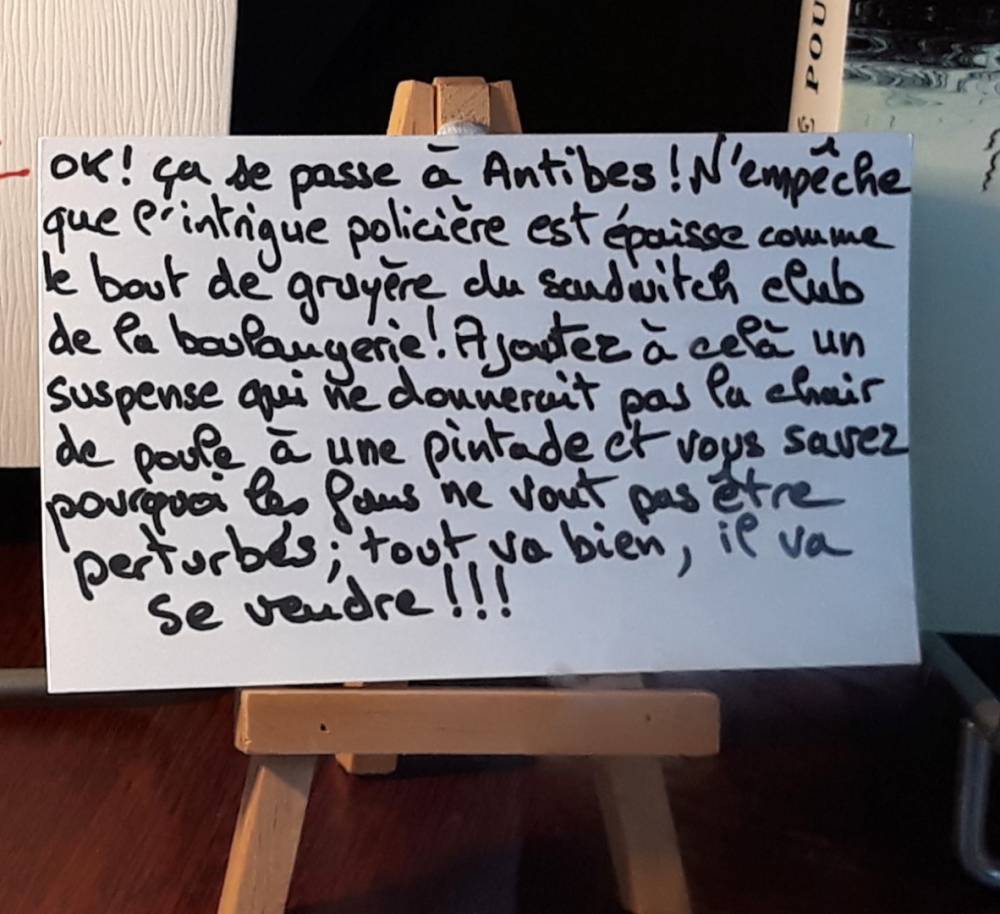 OK! ça se passe à Antibes! N'empêche
que l'intrigue policière est épaisse comme
le bout de gruyère du sandwitch club
de la boulangerie! Ajoutez à celà un
suspense qui ne donnerait pas la chair
de poule à une pintade et vous savez
pourquoi les fans ne vont pas être
perturbés; tout va bien, il va
se vendre!!!
POU